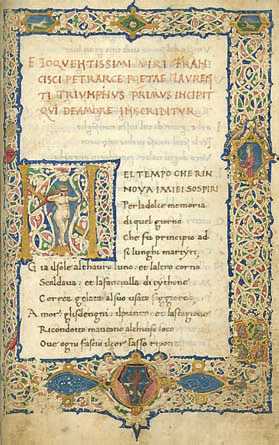 ELOQVENTISSIMI VIRI FRAN
CISCI PETRARCE POETAE LAVREN
TI TRIVMPHVS PRIMVS INCIPIT
QVI DE AMORE INSCRIBITVR
EL TEMPO CHE RIN
NOVA I MIEI SOSPIRI
Per la dolce memoria
di quel giorno
Che fu principio ad
si lunghi martyri,
Gia il sole al thauro luno: et laltro corno
Scaldaua: et la fanciulla di tythone
Correa gelata al suo usato soggiorno
Amor: gli sdegni: il pianto: et la stagione
Ricondotto maueano al chiuso loco
Oue ogni fascio il cor lasso ripone